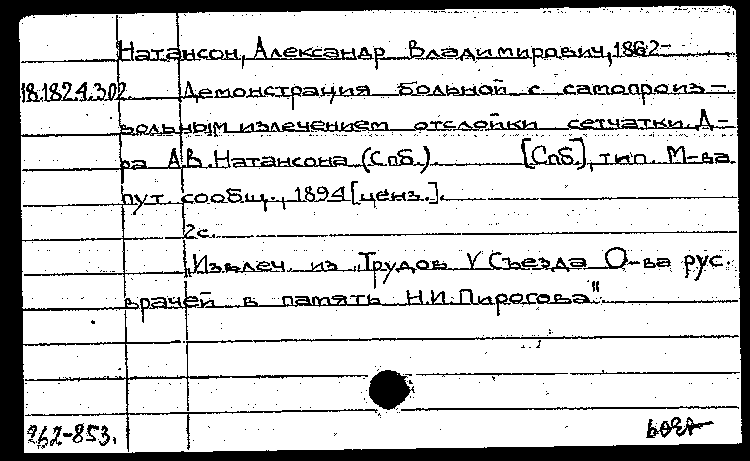 Натансон, Александр Владимирович, 1862-
18.1824.302. Демонстрация больной с самопроиз-
вольным излечением отслойки сетчатки. Д-
ра А.В. Натансона (Спб.). [Спб], тип. М-ва
пут. сообщ., 1894 [ценз.].
2с.
„Извлеч. из „Трудов V Съезда О-ва рус.
врачей в память Н.И. Пирогова"
262-853.